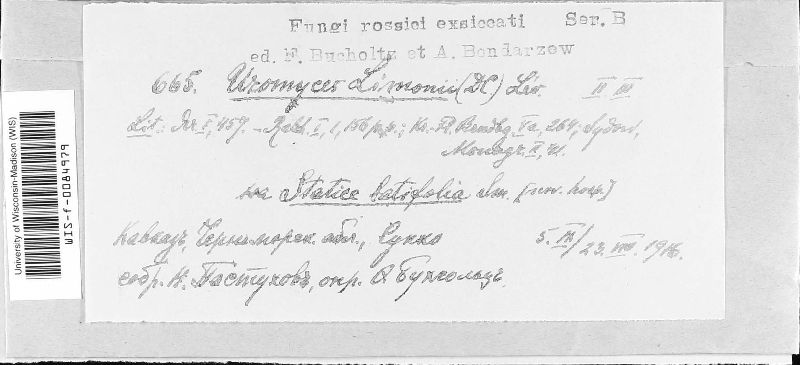 Fungi rossici exsiccati Ser. B
ed. F. Bucholtz et A. Bondarzew
665. Uromyces Limonii (DC) Lév. II III
Lit.: I, 457. – Rabh. I, 1, 156 p.p.; Kr.-Fl. Brndbg Va, 264; Sydow,
Monogr. II, 41.
на Statice latifolia Sm. [nov. hosp.]
Кавказъ, Черноморск. обл., Сукко 5. /23. VIII. 1916.
собр. Н. Пастуховъ, опр. Бухгольцъ.
University of Wisconsin-Madison (WIS)
WIS-f-0084979